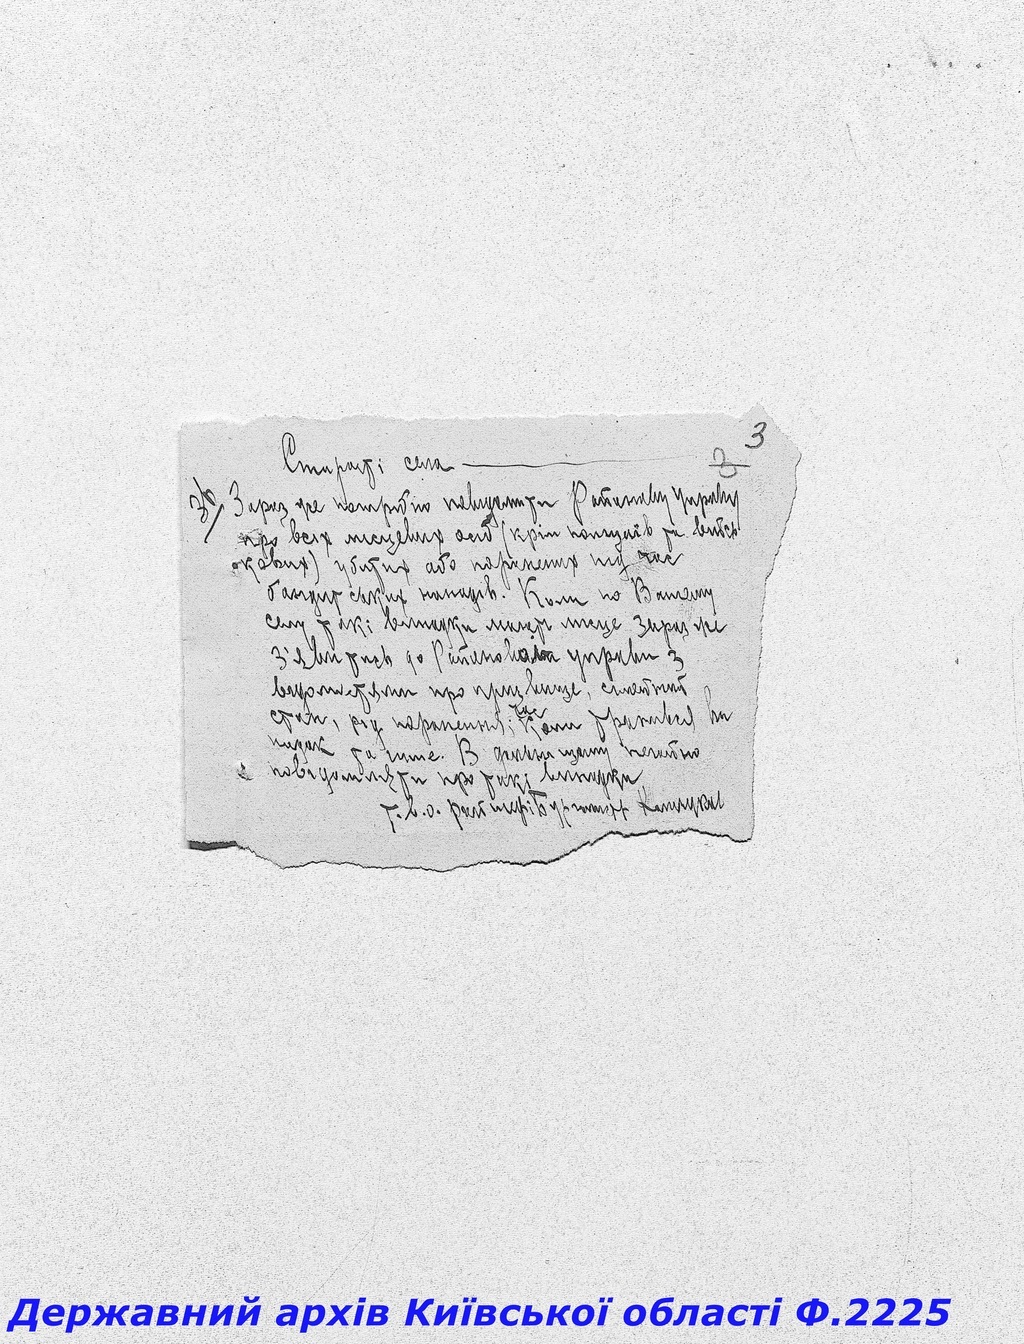 3
3
Старості села
Зараз же потрібно повідомити Районову управу
про всіх місцевих осіб (крім поліцаїв та військ
ових) убитих або поранених під час
бандитських нападів. Коли по Вашему
селу такі випадки мають місце зараз же
з'явитись до Районової управи з
відомостями про прізвище, сімейний
стан, рід поранення; час коли трапився на
пад та інше. В дальнішому негайно
повідомляти про такі випадки
т.в.о. райшефбургомістр
Державний архів Київської області Ф.2225